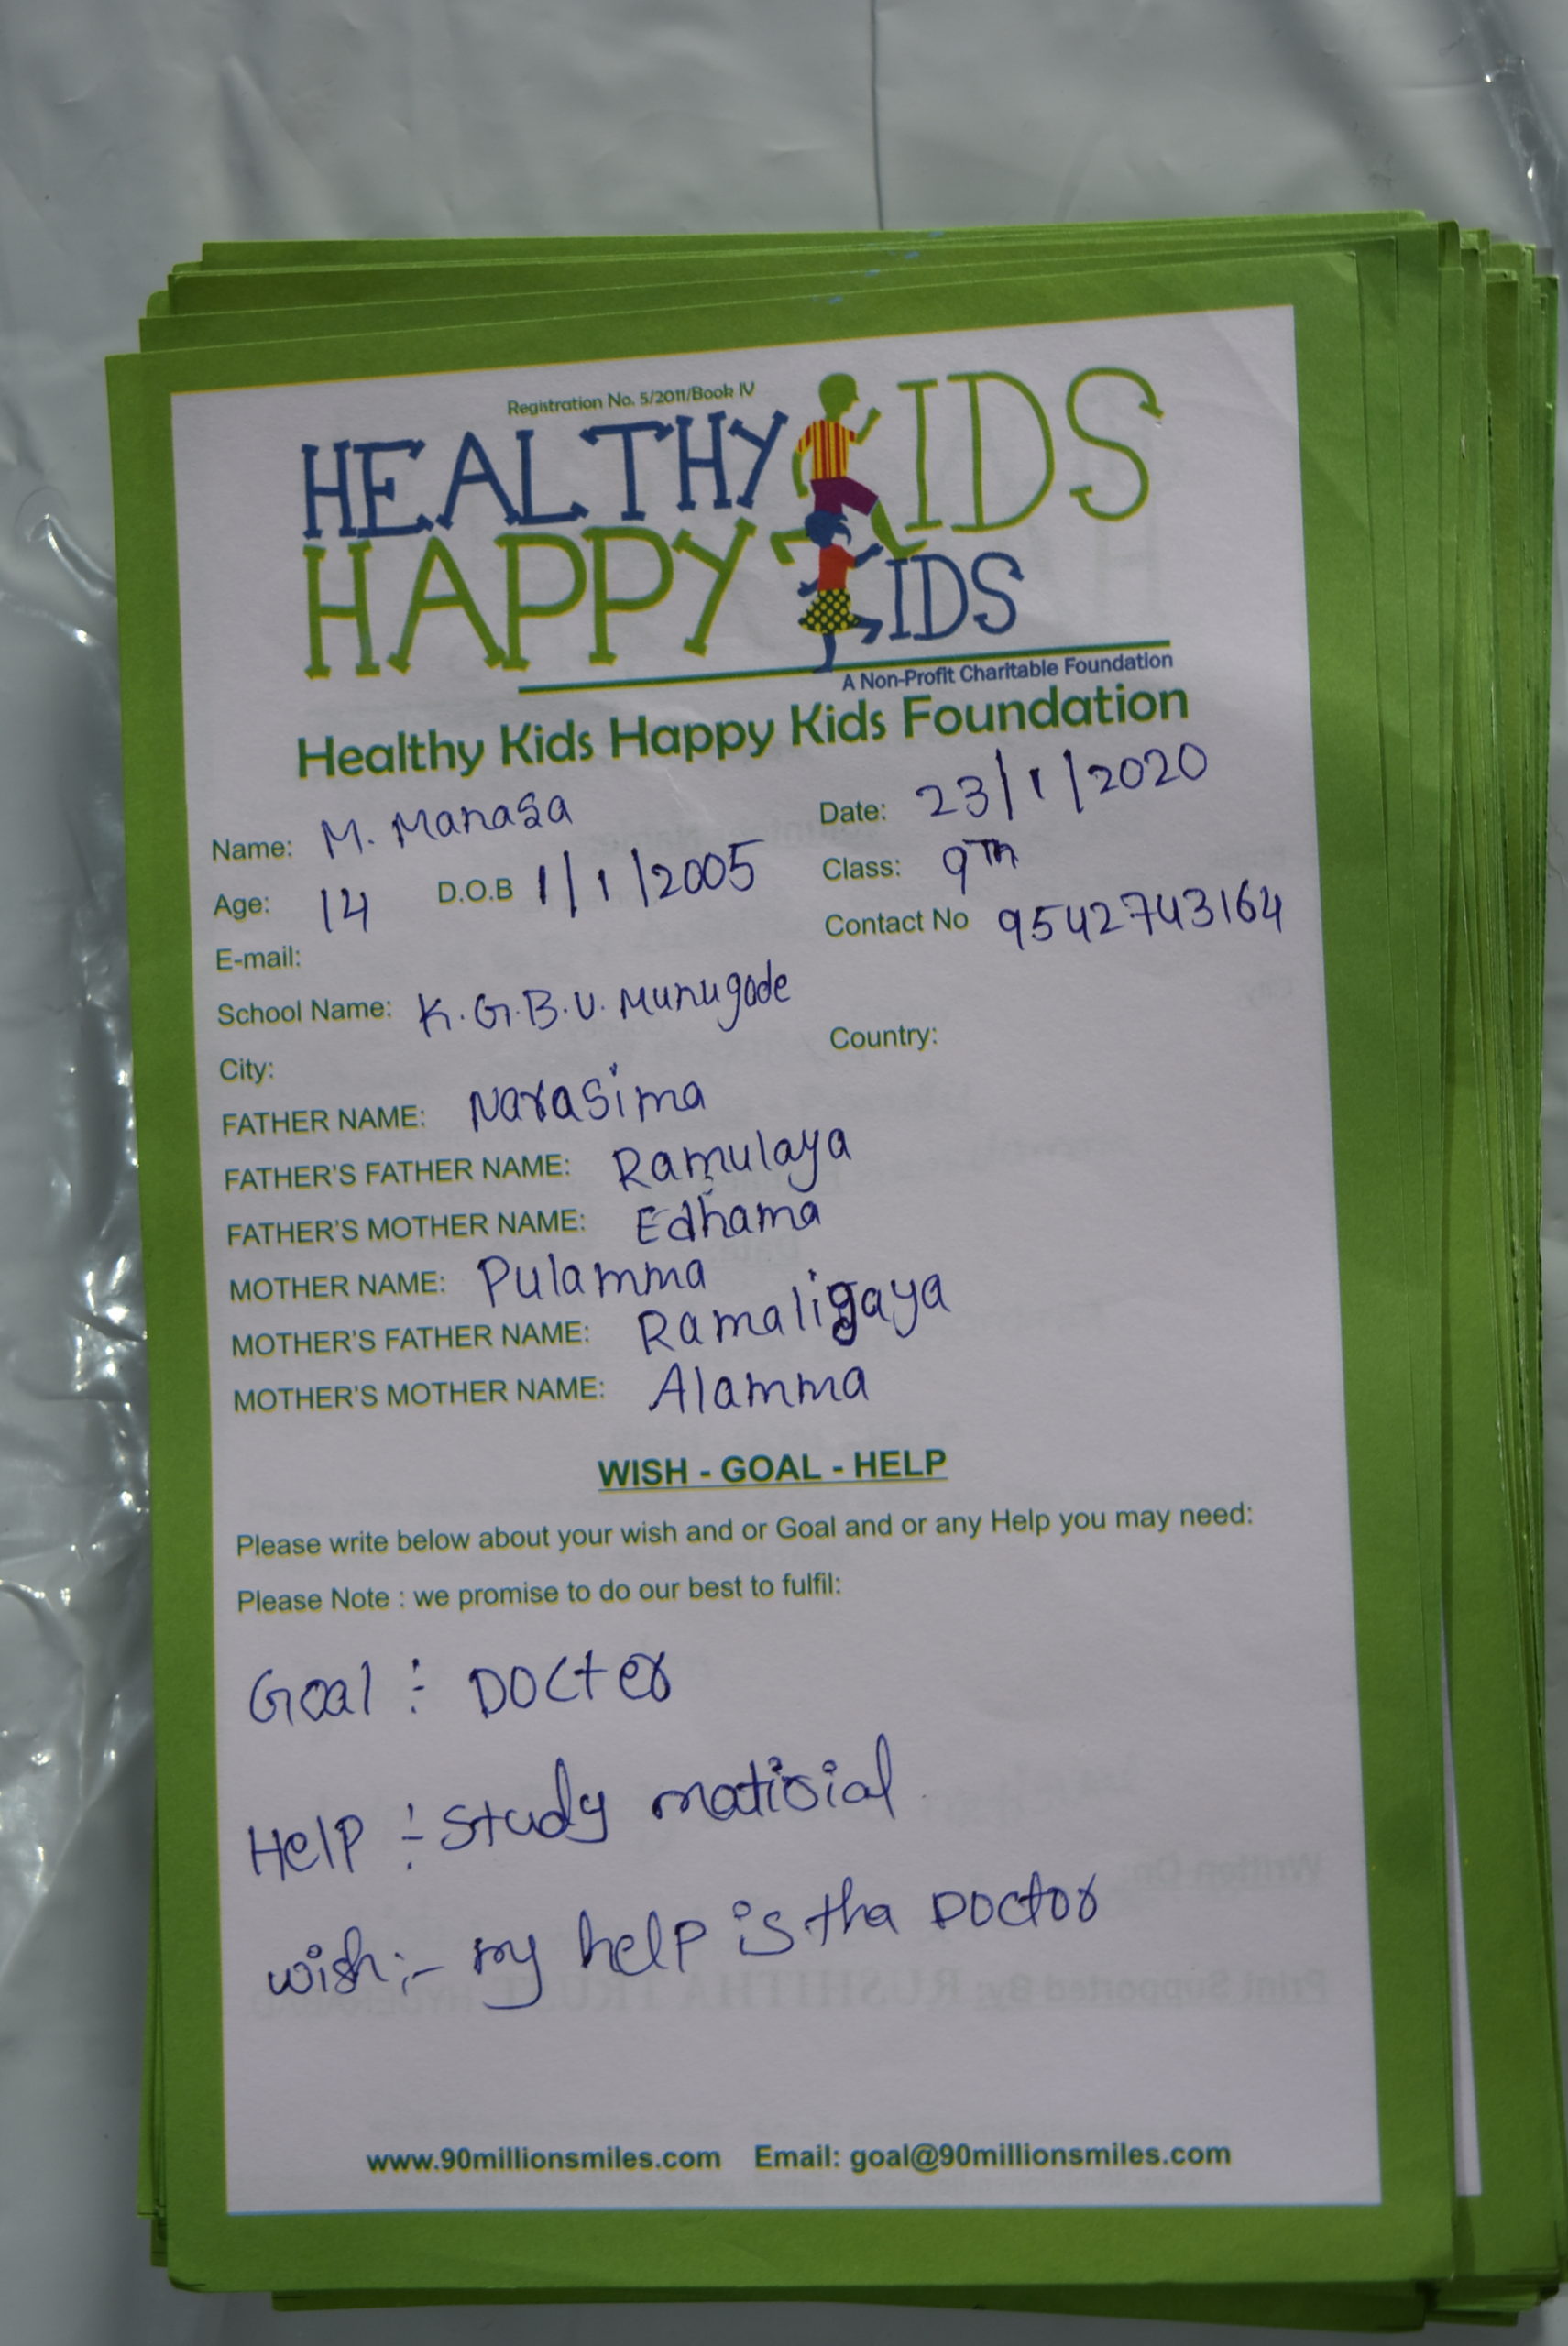 Registration No. 5/2011/Book IV
HEALTHY KIDS
HAPPY KIDS
A Non-Profit Charitable Foundation
Healthy Kids Happy Kids Foundation
Name: M. Manasa Date: 23/1/2020
Age: 14 D.O.B 1/1/2005 Class: 9Th
E-mail: Contact No 9542743164
School Name: K.G.B.V. Munugode
City: Country:
FATHER NAME: Narasima
FATHER'S FATHER NAME: Ramulaya
FATHER'S MOTHER NAME: Edhama
MOTHER NAME: Pulamma
MOTHER'S FATHER NAME: Ramaligaya
MOTHER'S MOTHER NAME: Alamma
WISH - GOAL - HELP
Please write below about your wish and or Goal and or any Help you may need:
Please Note : we promise to do our best to fulfil:
Goal : Docter
Help : Study matirial
wish :- my help is tha Doctor
www.90millionsmiles.com Email: goal@90millionsmiles.com